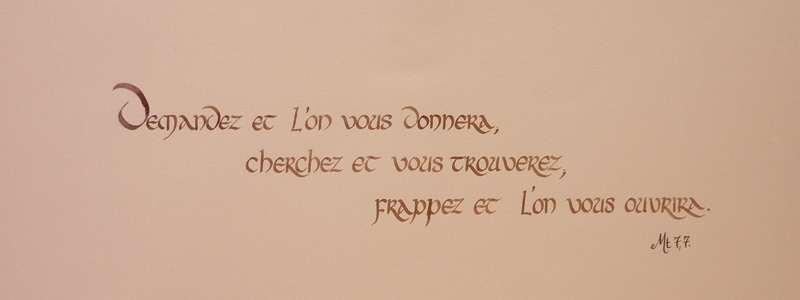 Demandez et L'on vous donnera,
cherchez et vous trouverez,
frappez et L'on vous ouvrira.
Mt 7,7.